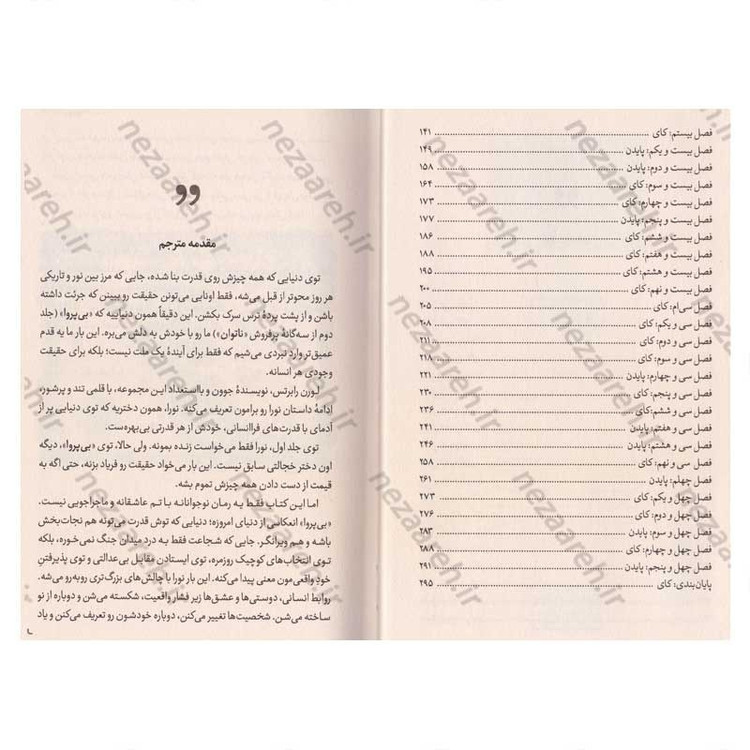 فصل بیستم: کای ۱۴۱
فصل بیست و یکم: پایدن ۱۴۹
فصل بیست و دوم: پایدن ۱۵۸
فصل بیست و سوم: کای ۱۶۴
فصل بیست و چهارم: کای ۱۷۳
فصل بیست و پنجم: پایدن ۱۷۷
فصل بیست و ششم: کای ۱۸۶
فصل بیست و هفتم: کای ۱۸۸
فصل بیست و هشتم: کای ۱۹۵
فصل بیست و نهم: کای ۲۰۰
فصل سی‌ام: کای ۲۰۵
فصل سی و یکم: کای ۲۰۸
فصل سی و دوم: کای ۲۱۱
فصل سی و سوم: کای ۲۱۸
فصل سی و چهارم: پایدن ۲۲۱
فصل سی و پنجم: کای ۲۳۰
فصل سی و ششم: کای ۲۳۶
فصل سی و هفتم: پایدن ۲۴۱
فصل سی و هشتم: پایدن ۲۴۶
فصل سی و نهم: کای ۲۵۸
فصل چهلم: پایدن ۲۶۱
فصل چهل و یکم: کای ۲۷۳
فصل چهل و دوم: کای ۲۷۶
فصل چهل و سوم: پایدن ۲۸۳
فصل چهل و چهارم: کای ۲۸۸
فصل چهل و پنجم: پایدن ۲۹۱
پایان‌بندی: کای ۲۹۵
مقدمه مترجم
توی دنیایی که همه چیزش روی قدرت بنا شده، جایی که مرز بین نور و تاریکی
هر روز محوتر از قبل می‌شه، فقط اونایی می‌تونن حقیقت رو ببینن که جرئت داشته
باشن و از پشت پردهٔ ترس سرک بکشن. این دقیقاً همون دنیاییه که «بی‌پروا» (جلد
دوم از سه‌گانهٔ پرفروش «ناتوان») ما رو با خودش به دلش می‌بره. این بار ما یه قدم
عمیق‌تر وارد نبردی می‌شیم که فقط برای آیندهٔ یک ملت نیست؛ بلکه برای حقیقت
وجودی هر انسانه.
لورن رابرتس، نویسندهٔ جوون و بااستعداد این مجموعه، با قلمی تند و پرشور،
ادامهٔ داستان نورا رو برامون تعریف می‌کنه. نورا، همون دختریه که توی دنیایی پر از
آدمای با قدرت‌های فراانسانی، خودش از هر قدرتی بی‌بهره‌ست.
توی جلد اول، نورا فقط می‌خواست زنده بمونه. ولی حالا، توی «بی‌پروا»، دیگه
اون دختر خجالتی سابق نیست. این بار می‌خواد حقیقت رو فریاد بزنه، حتی اگه به
قیمت از دست دادن همه چیزش تموم بشه.
اما این کتاب فقط یه رمان نوجوانانه با تم عاشقانه و ماجراجویی نیست.
«بی‌پروا» انعکاسی از دنیای امروزه: دنیایی که توش قدرت می‌تونه هم نجات‌بخش
باشه و هم ویرانگر. جایی که شجاعت فقط به درد میدان جنگ نمی‌خوره، بلکه
توی انتخاب‌های کوچیک روزمره، توی ایستادن مقابل بی‌عدالتی و توی پذیرفتن
خودِ واقعی‌مون معنی پیدا می‌کنه. این بار نورا با چالش‌های بزرگ‌تری روبه‌رو می‌شه.
روابط انسانی، دوستی‌ها و عشق‌ها زیر فشار واقعیت، شکسته می‌شن و دوباره از نو
ساخته می‌شن. شخصیت‌ها تغییر می‌کنن، دوباره خودشون رو تعریف می‌کنن و یاد
nezaareh.ir
nezaareh.ir
nezaareh.ir
nezaareh.ir
nezaareh.ir
nezaareh.ir
nezaareh.ir
nezaareh.ir